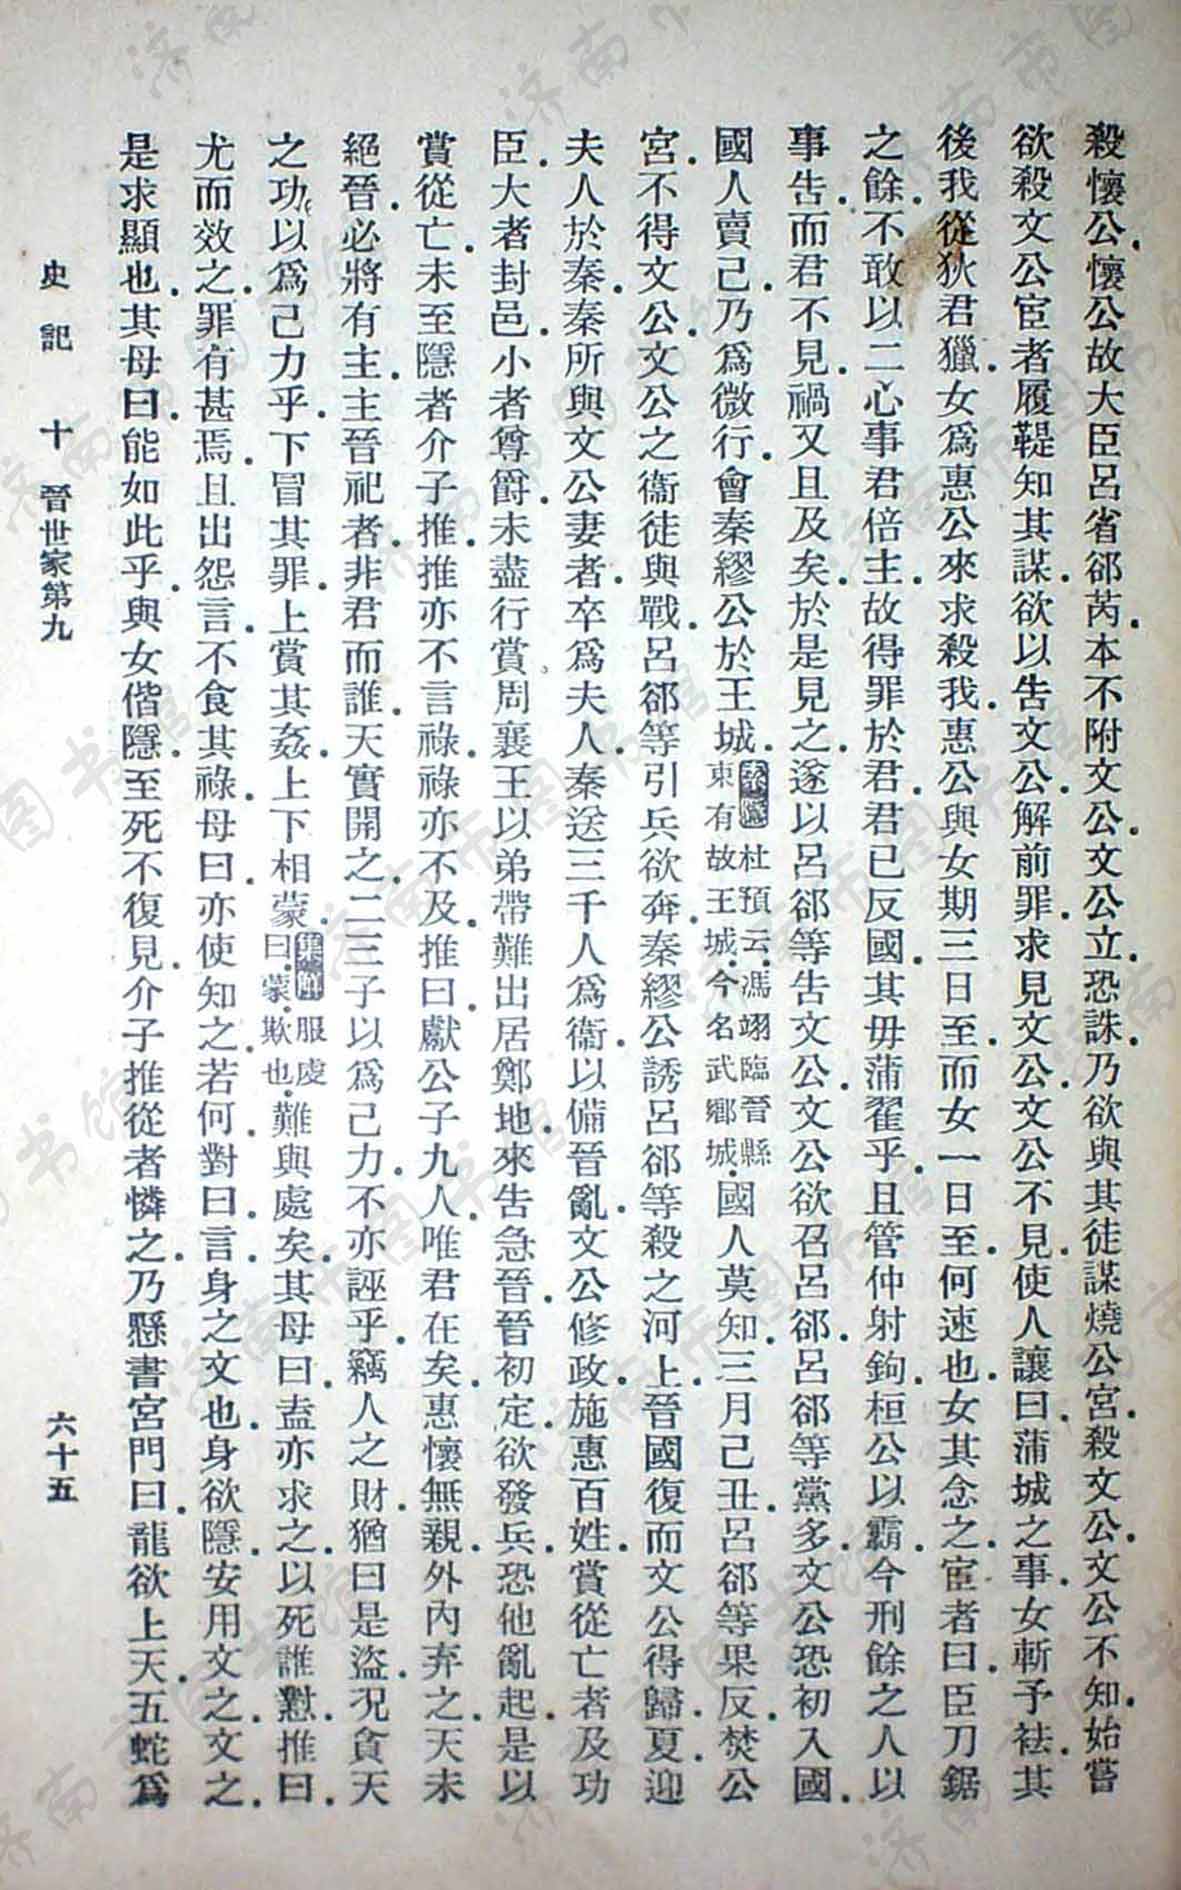 殺懷公.懷公故大臣呂省郤芮.本不附文公.文公立.恐誅.乃欲與其徒謀燒公宮.殺文公.文公不知.始嘗
欲殺文公宦者履鞮知其謀.欲以告文公.解前罪.求見文公.文公不見.使人讓曰.蒲城之事.女斬予袪.其
後我從狄君獵.女爲惠公來求殺我.惠公與女期三日至.而女一日至.何速也.女其念之.宦者曰.臣刀鋸
之餘.不敢以二心事君倍主.故得罪於君.君已反國.其毋蒲翟乎.且管仲射鉤.桓公以霸.今刑餘之人以
事告.而君不見.禍又且及矣.於是見之.遂以呂郤等告文公.文公欲召呂郤.呂郤等黨多.文公恐初入國.
國人賣己.乃爲微行.會秦繆公於王城.索隱杜預云.馮翊臨晉縣東有故王城.今名武鄉城.國人莫知.三月己丑.呂郤等果反.焚公
宮.不得文公.文公之衞徒與戰.呂郤等引兵欲奔.秦繆公誘呂郤等殺之河上.晉國復而文公得歸.夏.迎
夫人於秦.秦所與文公妻者.卒爲夫人.秦送三千人爲衞.以備晉亂.文公修政.施惠百姓.賞從亡者及功
臣.大者封邑.小者尊爵.未盡行賞.周襄王以弟帶難出居鄭地.來告急晉.晉初定.欲發兵.恐他亂起.是以
賞從亡.未至隱者介子推.推亦不言祿.祿亦不及.推曰.獻公子九人.唯君在矣.惠懷無親.外內弃之.天未
絕晉.必將有主.主晉祀者.非君而誰.天實開之.二三子以爲己力.不亦誣乎.竊人之財.猶曰是盜.況貪天
之功.以爲己力乎.下冒其罪.上賞其姦.上下相蒙.集解服虔曰.蒙.欺也.難與處矣.其母曰.盍亦求之.以死誰懟.推曰.
尤而效之.罪有甚焉.且出怨言.不食其祿.母曰.亦使知之.若何.對曰.言.身之文也.身欲隱.安用文之.文之.
是求顯也.其母曰.能如此乎.與女偕隱.至死不復見.介子推從者憐之.乃懸書宮門曰.龍欲上天.五蛇爲
史記 十 晉世家第九 六十五
济南市图书馆